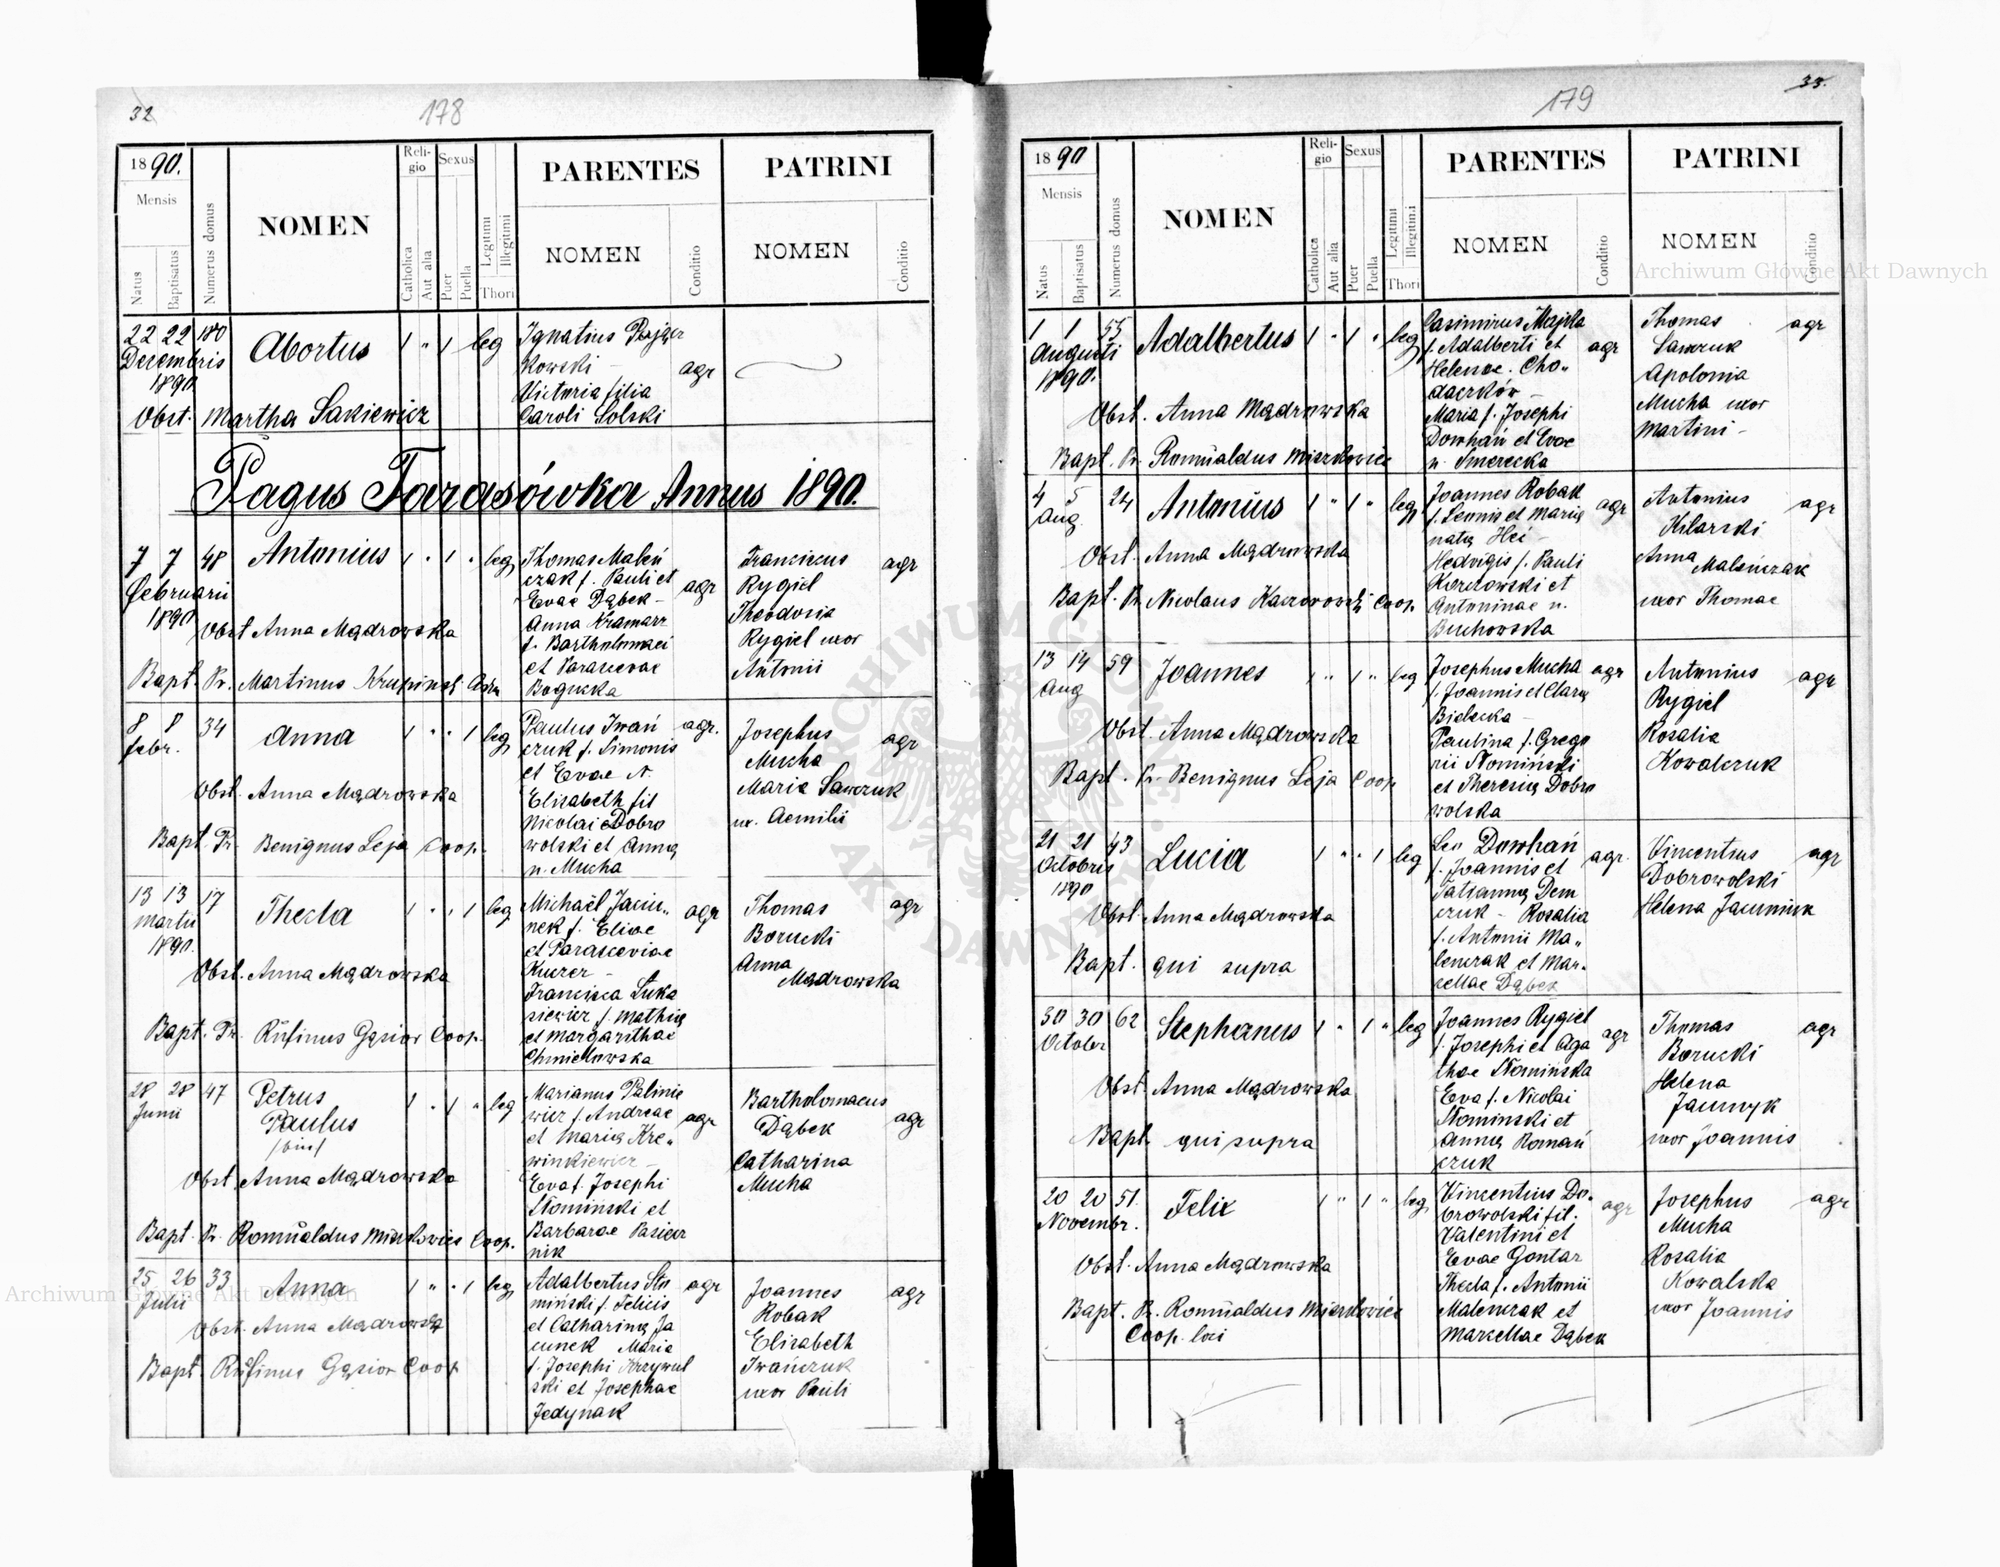 32
178
1890.
Mensis
Natus
Baptisatus
Numerus domus
NOMEN
Reli-
gio
Catholica
Aut alia
Sexus
Puer
Puella
Legitimi
Illegitimi
Thori
PARENTES
NOMEN
Conditio
PATRINI
NOMEN
Conditio
22 22 180 Abortus 1 " 1 leg
Decembris
1890
Ignatius
kowski -
Victoria filia
Caroli Solski
agr
Obst. Martha Sakiewicz
Pagus Tarasówka Annus 1890.
7 7 48 Antonius 1 " 1 " leg
Februarii
1890
Thomas Maleń
czak f. Pauli et
Evae Dąbek -
Anna Kramarz
f. Bartholomaei
et Parascevae
Bogucka
agr
Franciscus
Rygiel
Theodosia
Rygiel uxor
Antonii
agr
Obst Anna Mądrowska
Bapt. Pr. Martinus Krupiński
8 8 34 Anna 1 " " 1 leg
febr.
Paulus Iwań
czuk f. Simonis
et Evae N.
Elisabeth fil
Nicolai Dobro
wolski et Annę
n. Mucha
agr.
Josephus
Mucha
Maria Sawczuk
ux. Aemilii
agr
Obst. Anna Mądrowska
Bapt. Pr. Benignus Leja Coop.
13 13 17 Thecla 1 " " 1 leg
Martii
1890.
Michaël Jacu„
nek f. Eliae
et Parasceviae
Kuczer -
Francisca Łuka
siewicz f. Mathię
et Margarithae
Chmielowska
agr
Thomas
Borucki
Anna
Mądrowska
agr
Obst. Anna Mądrowska
Bapt. Pr. Rufinus Gąsior Coop.
28 28 47 Petrus 1 " 1 " leg
Junii
Paulus
Marianus Palinie
wicz f. Andreae
et Marię Kre„
winkiewicz -
Eva f. Josephi
Słomiński et
Barbarae Pasiecz
nik
agr
Bartholomaeus
Dąbek
Catharina
Mucha
agr
Obst. Anna Mądrowska
Bapt. Pr. Romualdus Miszkowicz Coop.
25 26 33 Anna 1 " " 1 leg
Julii
Adalbertus Sło
miński f. Felicis
et Catharinę Ja
cunek Maria
f. Josephi Krzywul
ski et Josephae
Jedynak
agr
Joannes
Robak
Elisabeth
Iwańczuk
uxor Pauli
agr
Obst. Anna Mądrowska
Bapt. Rufinus Gąsior Coop
33.
179
1890
Mensis
Natus
Baptisatus
Numerus domus
NOMEN
Reli-
gio
Catholica
Aut alia
Sexus
Puer
Puella
Legitimi
Illegitimi
Thori
PARENTES
NOMEN
Conditio
PATRINI
NOMEN
Conditio
1 1 55 Adalbertus 1 " 1 " leg
Augusti
1890.
Casimirus Majka
f. Adalberti et
Helenae Cho„
daczków -
Maria f. Josephi
Dowhań et Evae
n. Smerecka
agr
Thomas
Sawczuk
Apolonia
Mucha uxor
Martini -
agr
Obst. Anna Mądrowska
Bapt. Pr. Romualdus Miszkowicz
4 5 24 Antonius 1 " 1 " leg
Aug.
Joannes Robak
f. Leonis et Marię
natę Hei -
Hedvigis f. Pauli
Kozłowski et
Antoninae n.
Buchowska
agr
Antonius
Kilarski
Anna Maleńczak
uxor Thomae
agr
Obst. Anna Mądrowska
Bapt. Pr. Nicolaus Kaczorowski Coop.
13 14 59 Joannes 1 " 1 " leg
Aug
Josephus Mucha
f. Joannis et Clarę
Bielecka -
Paulina f. Grego
rii Słomiński
et Theresię Dobro
wolska
agr
Antonius
Rygiel
Rosalia
Kowalczuk
agr
Obst. Anna Mądrowska
Bapt. Pr. Benignus Leja Coop
21 21 43 Lucia 1 " " 1 leg
Octobris
1890
Leo Dowhań
f. Joannis et
Tatiannę Dem
czuk - Rosalia
f. Antonii Ma„
lenczak et Mar-
cellae Dąbek
agr.
Vincentius
Dobrowolski
Helena Jacuniuk
agr
Obst. Anna Mądrowska
Bapt. qui supra
30 30 62 Stephanus 1 " 1 " leg
October
Joannes Rygiel
f. Josephi et Aga
thae Słomińska
Eva f. Nicolai
Słominski et
Annę Romań
czuk
agr
Thomas
Borucki
Helena
Jacunyk
uxor Joannis
agr
Obst. Anna Mądrowska
Bapt. qui supra
20 20 51. Felix 1 " 1 " leg
Novembr.
Vincentius Do-
browolski fil.
Valentini et
Evae Gontar
Thecla f. Antonii
Malenczak et
Marcellae Dąbek
agr
Josephus
Mucha
Rosalia
Kowalska
uxor Joannis
agr
Obst. Anna Mądrowska
Bapt. Pr. Romualdus Miszkowicz
Coop. loci
Archiwum Główne Akt Dawnych
Archiwum Główne Akt Dawnych
ARCHIWUM GŁÓWNE
AKT DAWNYCH